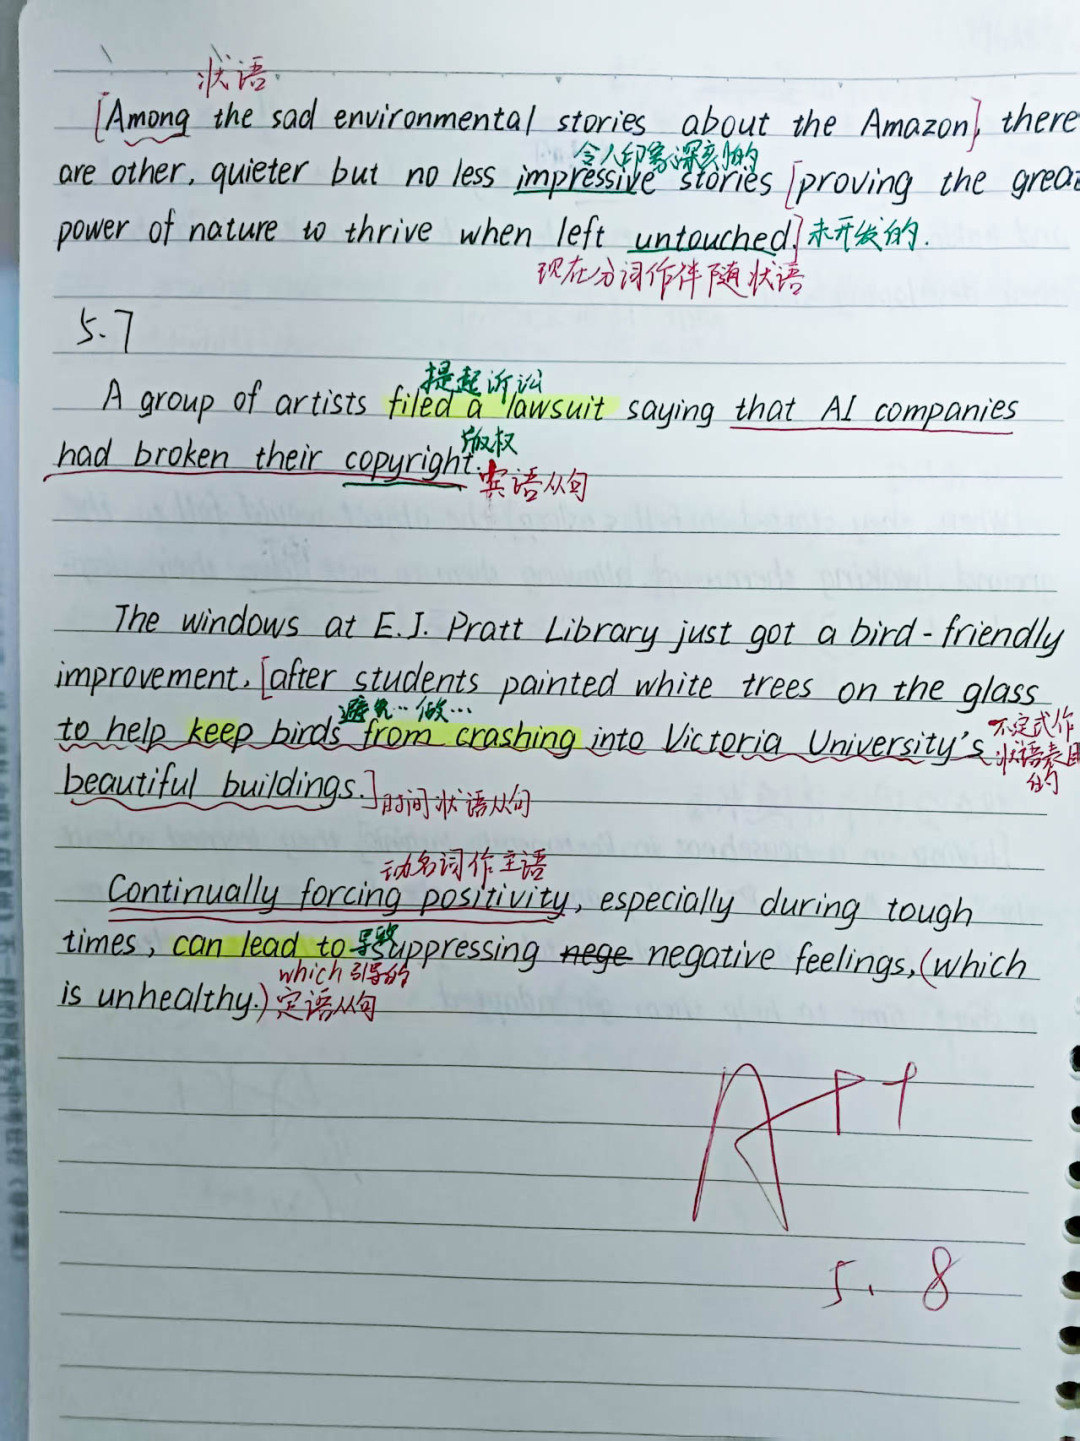 状语
[Among the sad environmental stories about the Amazon], there
令人印象深刻的
are other, quieter but no less impressive stories [proving the great
power of nature to thrive when left untouched.] 未开发的.
现在分词作伴随状语
5.7
提起诉讼
A group of artists filed a lawsuit saying that AI companies
版权
had broken their copyright. 宾语从句
The windows at E.J. Pratt Library just got a bird-friendly
improvement, [after students painted white trees on the glass
避免…做…
to help keep birds from crashing into Victoria University's 不定式作
状语表目
的
beautiful buildings.] 时间状语从句
动名词作主语
Continually forcing positivity, especially during tough
times, can lead to 导致 suppressing nege negative feelings, (which
which引导的
is unhealthy.) 定语从句
A++
5.8